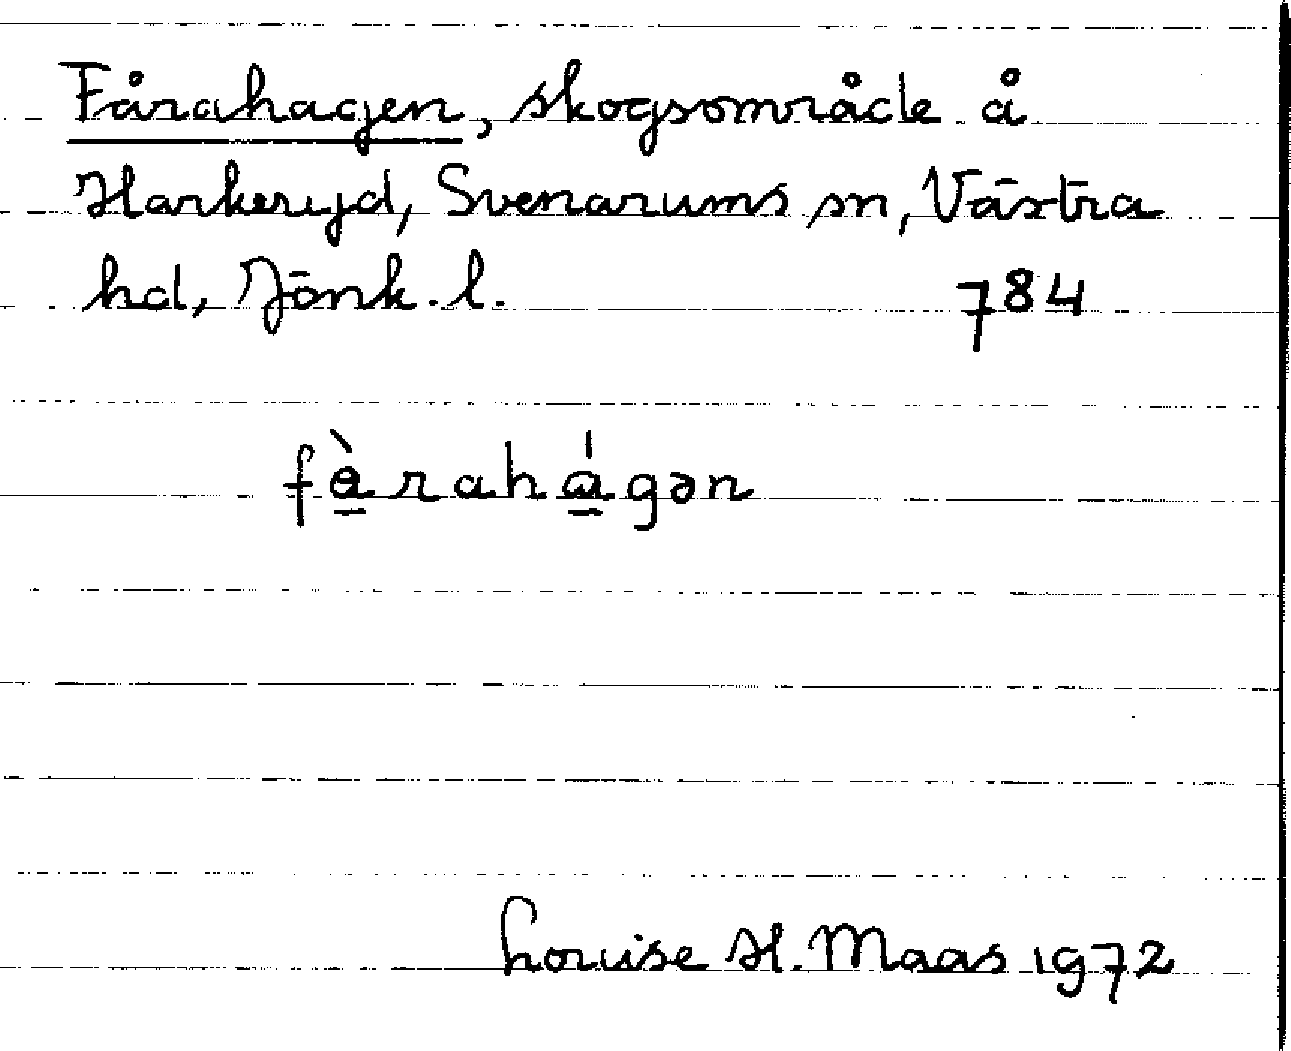 Fårahagen, skogsområde å
Harkeryd, Svenarums sn, Västra
hd, Jönk. l. 784
fàrahágən
Louise H. Maas 1972